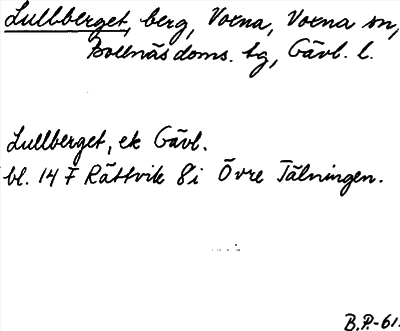 Lullberget, berg, Voxna, Voxna sn,
Bollnäs doms. tg, Gävl. l.
Lullberget, ek Gävl.
bl. 14 F Rättvik 8i Övre Tälningen.
B.P.-61.